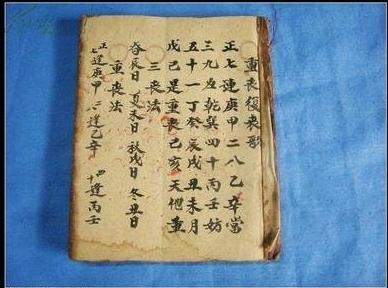 重丧復丧歌
正七連庚甲二八乙辛當
三九乾巽四十丙壬妨
五十一丁癸辰戌丑未月
戊己是重丧己亥天重
三丧法
春辰日 夏未日 秋戌日 冬丑日
重丧法
正七逢庚甲 二八逢乙辛 四十逢丙壬